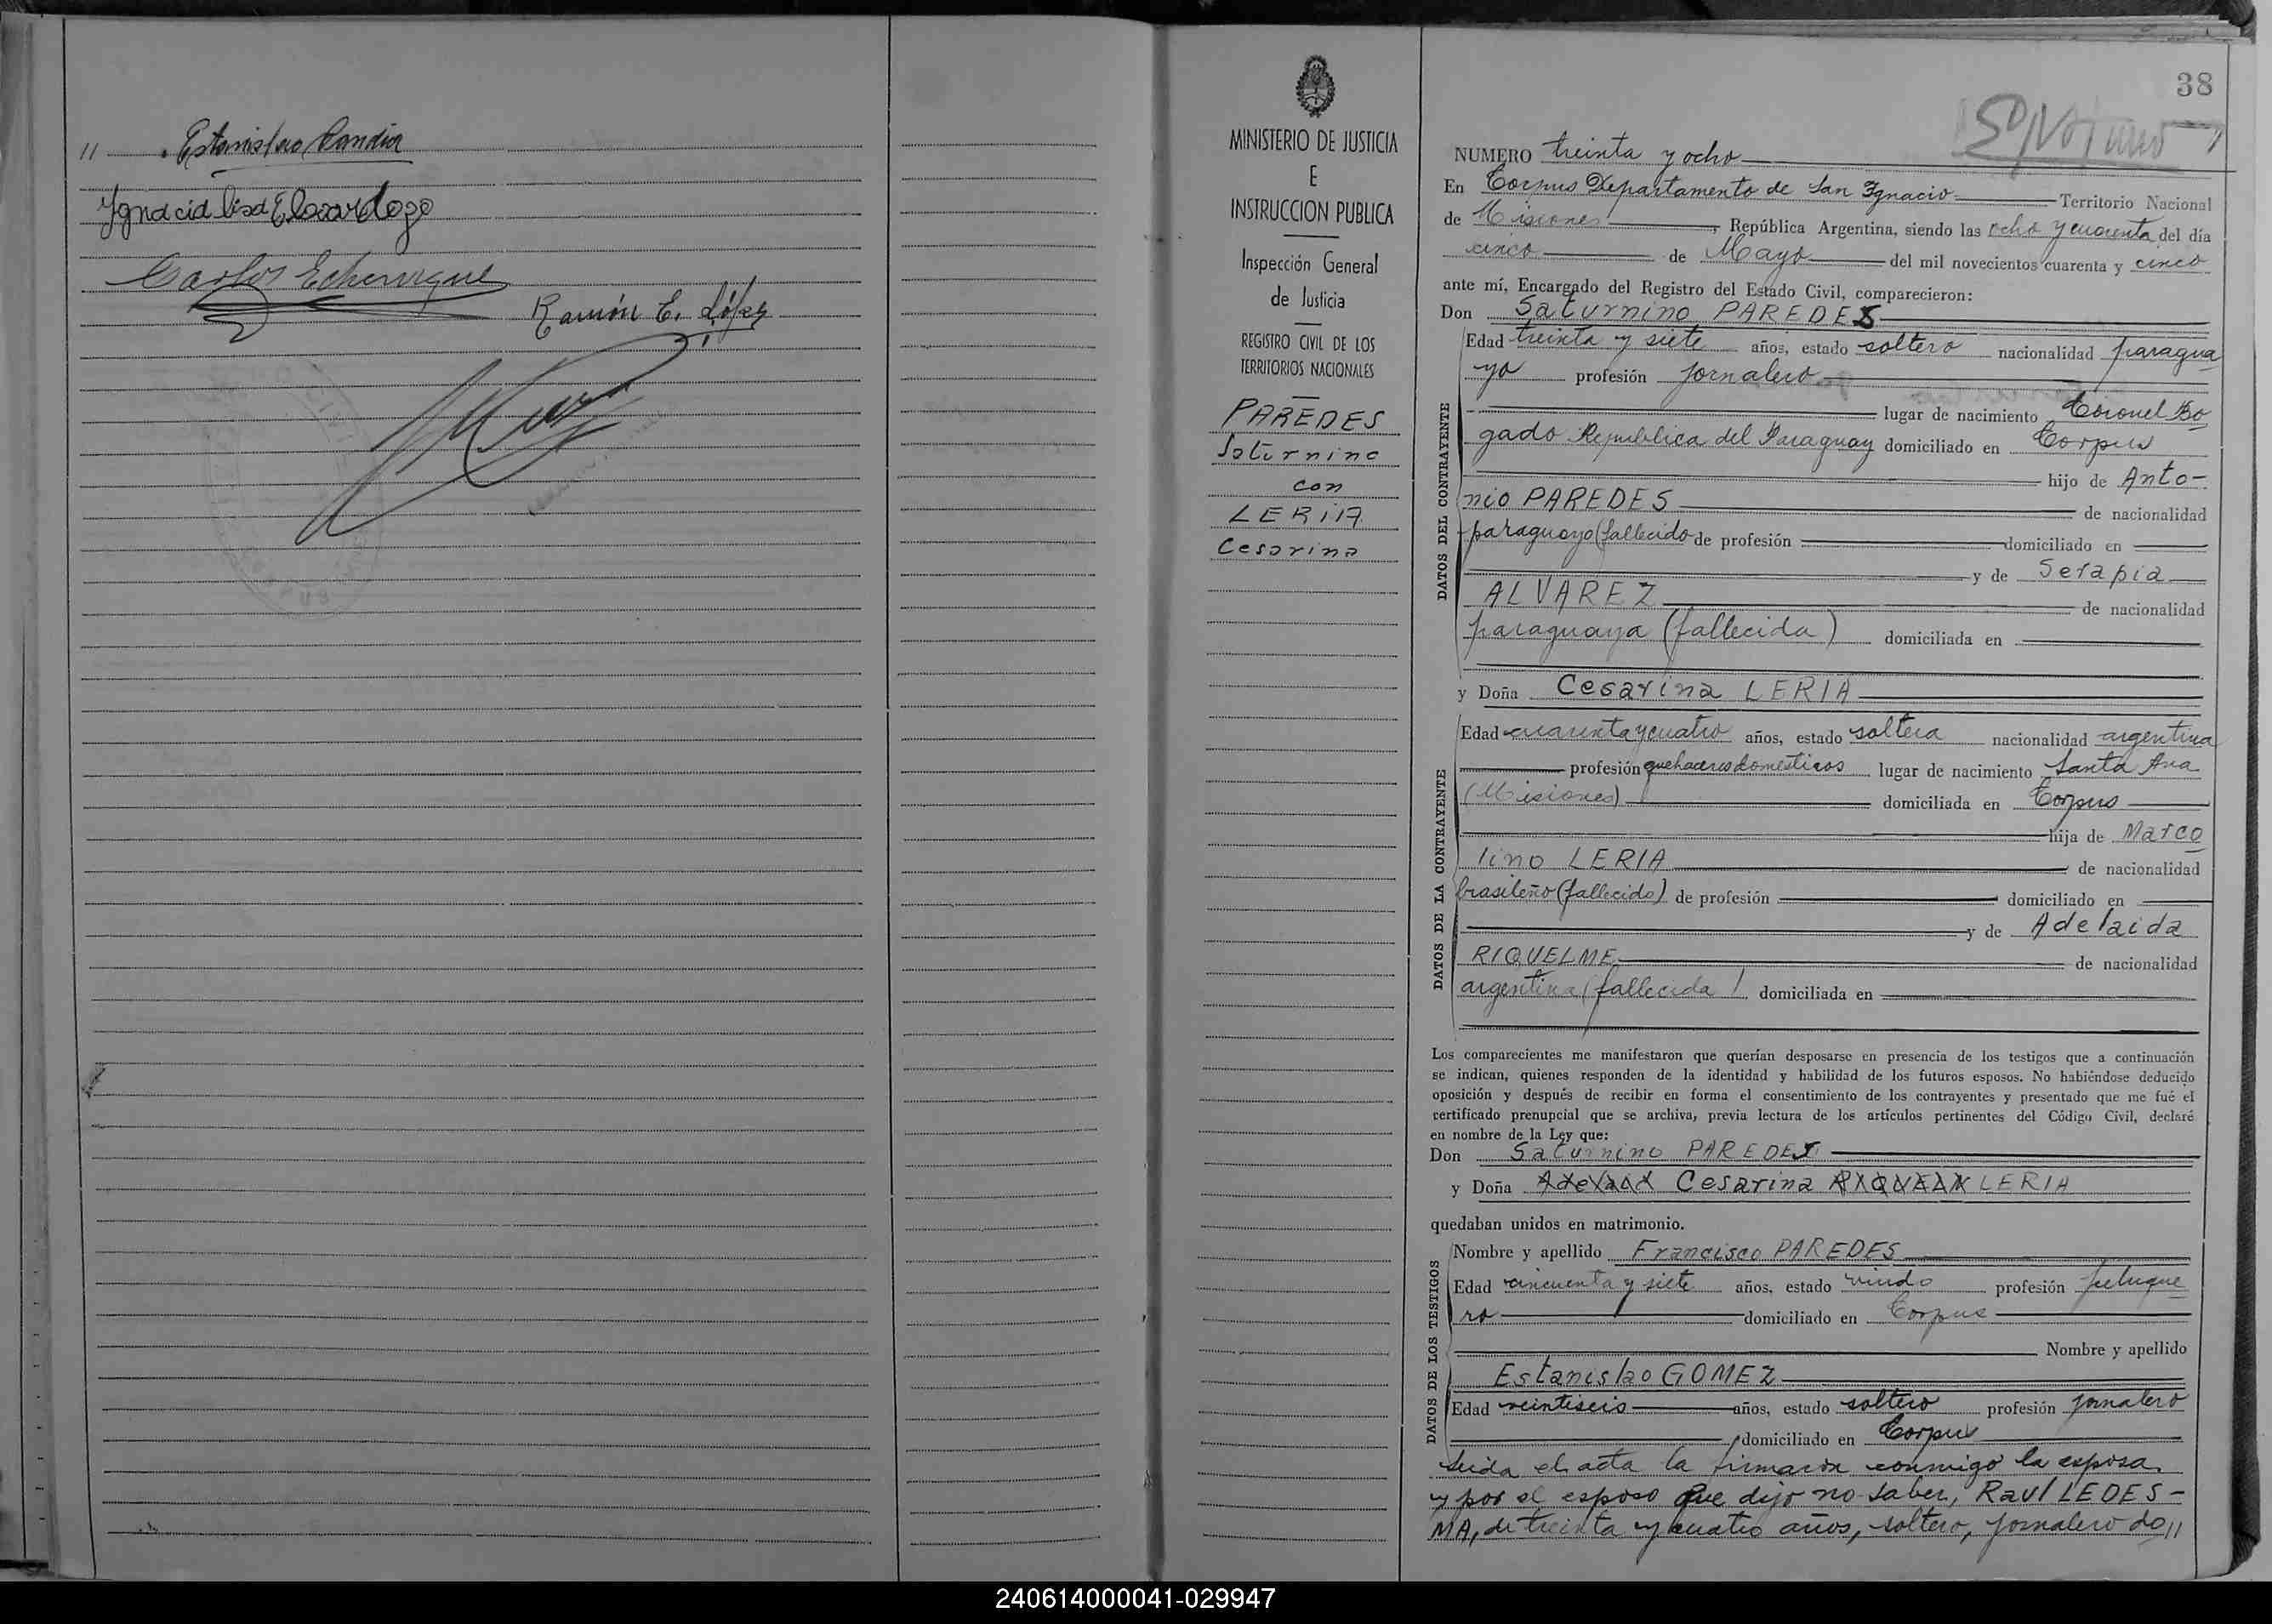 11 Estanislao Candia
Ignacia lisa E Cardozo
Carlos Echenique
Ramón E. López
38
MINISTERIO DE JUSTICIA
E
INSTRUCCION PUBLICA
Inspección General
de Justicia
REGISTRO CIVIL DE LOS
TERRITORIOS NACIONALES
PAREDES
Saturnino
con
LERIA
Cesarina
NUMERO treinta y ocho
En Corpus Departamento de San Ignacio Territorio Nacional
de Misiones, República Argentina, siendo las ocho y cuarenta del día
cinco de Mayo del mil novecientos cuarenta y cinco
ante mí, Encargado del Registro del Estado Civil, comparecieron:
Don Saturnino PAREDES
DATOS DEL CONTRAYENTE
Edad treinta y siete años, estado soltero nacionalidad paragua
yo profesión jornalero
lugar de nacimiento Coronel Bo
gado Republica del Paraguay domiciliado en Corpus
hijo de Anto-
nio PAREDES de nacionalidad
paraguayo (fallecido de profesión domiciliado en
y de Serapia
ALVAREZ de nacionalidad
paraguaya (fallecida) domiciliada en
y Doña Cesarina LERIA
DATOS DE LA CONTRAYENTE
Edad cuarenta y cuatro años, estado soltera nacionalidad argentina
profesión quehaceres domésticos lugar de nacimiento Santa Ana
(Misiones) domiciliada en Corpus
hija de Marce
lino LERIA de nacionalidad
brasileño (fallecido) de profesión domiciliado en
y de Adelaida
RIQUELME de nacionalidad
argentina (fallecida) domiciliada en
Los comparecientes me manifestaron que querían desposarse en presencia de los testigos que a continuación
se indican, quienes responden de la identidad y habilidad de los futuros esposos. No habiéndose deducido
oposición y después de recibir en forma el consentimiento de los contrayentes y presentado que me fué el
certificado prenupcial que se archiva, previa lectura de los artículos pertinentes del Código Civil, declaré
en nombre de la Ley que:
Don Saturnino PAREDES
y Doña Cesarina LERIA
quedaban unidos en matrimonio.
DATOS DE LOS TESTIGOS
Nombre y apellido Francisco PAREDES
Edad cincuenta y siete años, estado viudo profesión peluque
ro domiciliado en Corpus
Nombre y apellido
Estanislao GOMEZ
Edad veintiseis años, estado soltero profesión jornalero
domiciliado en Corpus
Leida el acta la firmaron conmigo la esposa,
y por el esposo que dijo no saber, Raul LEDES-
MA, de treinta y cuatro años, soltero, jornalero do11
240614000041-029947